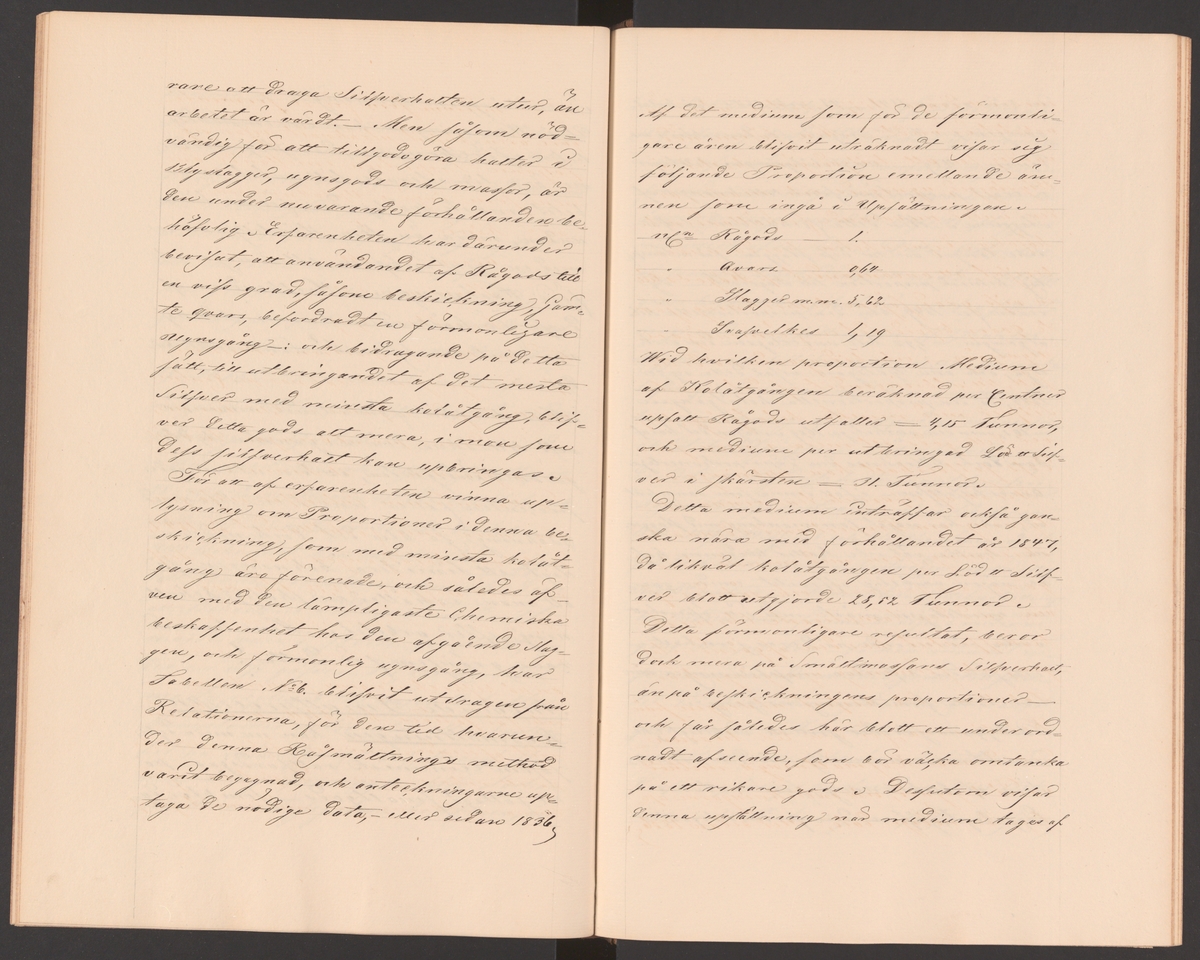 rare att draga Silfverhalten utur, än
arbetet är värdt. — Men såsom nöd=
vändig för att tillgodogöra halter i
Blyslagger, ugnsgods och massor, är
den under nuvarande förhållanden be-
höflig. Erfarenheten har därunder
bevisat, att användandet af Rågods till
en viss grad, såsom beskickning, jäm-
te qvars, befordradt en förmonligare
ugnsgång —: och bidragande på detta
sätt, till utbringandet af det mesta
Silfver med minsta kolåtgång, blif-
ver detta gods allt mera, i mon som
dess silfverhalt kan upbringas.
För att af erfarenheten vinna up-
lysning om Proportioner i denna be-
skickning, som med minsta kolåt-
gång äro förenade, och således äf-
ven med den lämpligaste Chemiska
beskaffenhet hos den afgående slag-
gen, och förmonlig ugnsgång, har
Tabellen N:o 6. blifvit utdragen från
Relationerna, för den tid hvarun-
der denna Råsmältnings method
varit begagnad, och anteckningarne up-
taga de nödige data, — eller sedan 1836,
Af det medium som för de förmonli-
gare åren blifvit uträknadt visar sig
följande Proportion emellan de äm-
nen som ingå i Upsättningen.
Rågods — 1.
" Qvars 0,64
" Slagger m.m. 5,62
" Trasvelkes 1,19
Wid hvilken proportion Medium
af Kolåtgången beräknad per Centner
upsatt Rågods utfaller = 4,15 Tunnor,
och medium per utbringad Löd tt Silf-
ver i skärsten = 31. Tunnor.
Detta medium inträffar också gan-
ska nära med förhållandet år 1847,
då likväl kolåtgången per Löd tt Silf-
ver blott utgjorde 28,52 Tunnor.
Detta förmonligare resultat, beror
dock mera på Smältmassans Silfverhalt,
än på beskickningens proportioner —
och får således här blott ett underord-
nadt afseende, som bör väcka omtanka
på ett rikare gods. Dessutom visar
denna upsättning när medium tages af